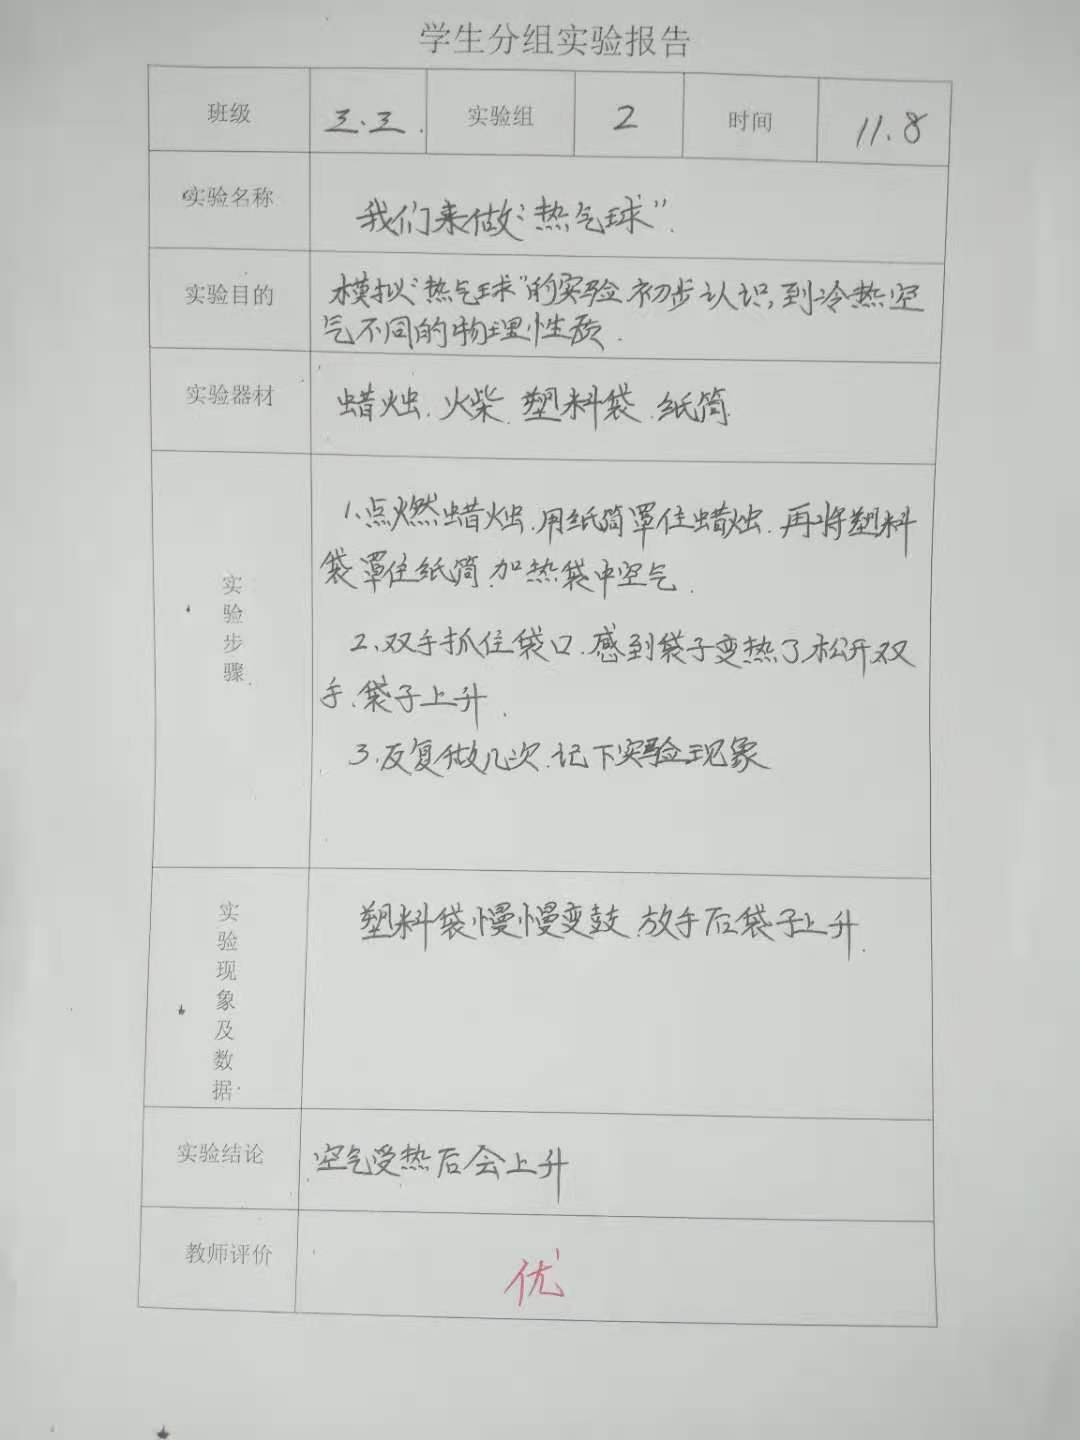 学生分组实验报告
班级 三.三. 实验组 2 时间 11.8
实验名称 我们来做“热气球”.
实验目的 模拟“热气球”的实验.初步认识,到冷热空
气不同的物理性质.
实验器材 蜡烛.火柴.塑料袋.纸筒.
实验步骤
1、点燃蜡烛.用纸筒罩住蜡烛.再将塑料
袋罩住纸筒.加热袋中空气.
2、双手抓住袋口.感到袋子变热了.松开双
手、袋子上升.
3、反复做几次.记下实验现象
实验现象及数据
塑料袋慢慢变鼓.放手后袋子上升.
实验结论 空气受热后会上升
教师评价 优